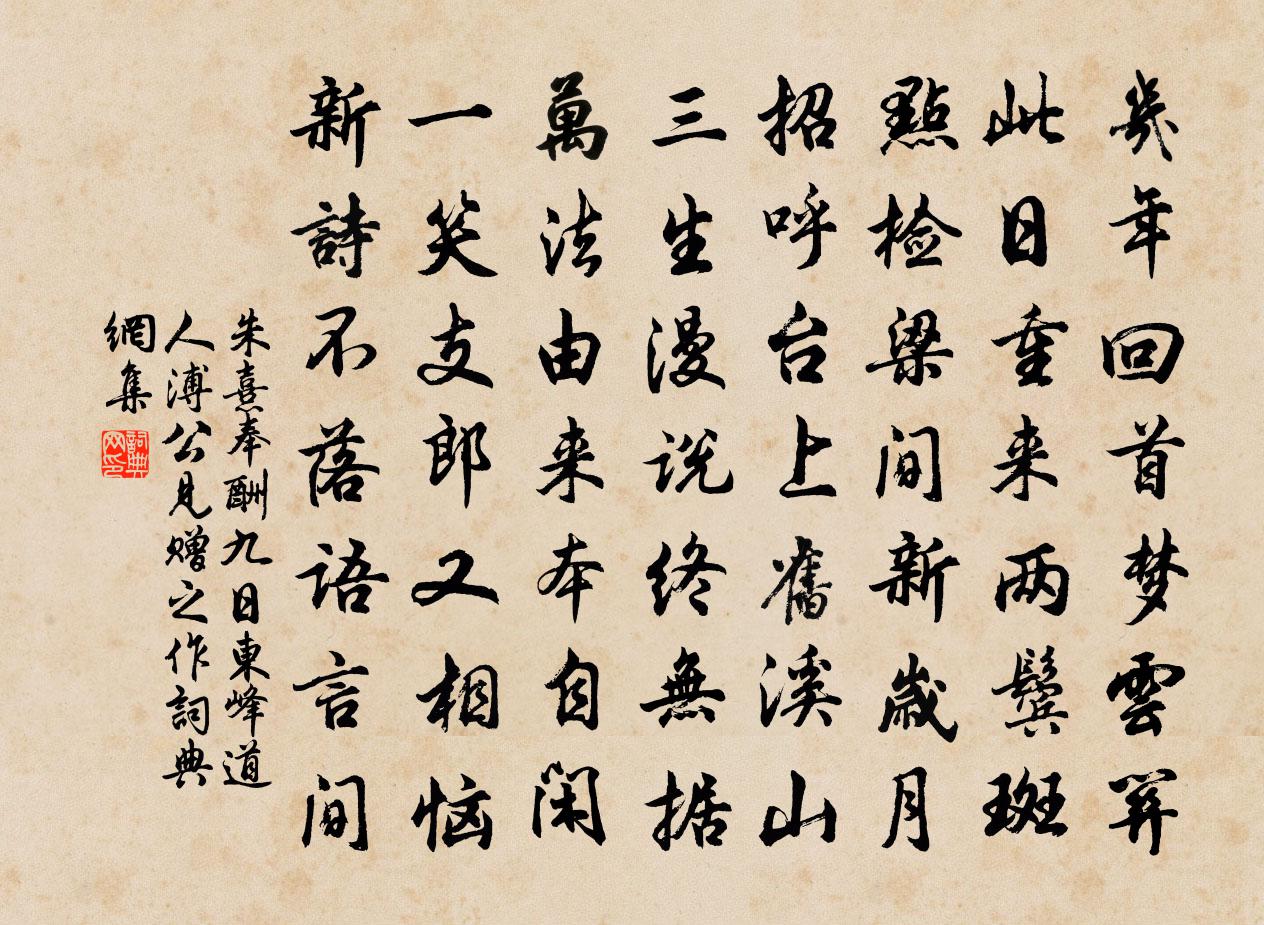 幾年回首梦雲關
此日重来两鬓斑
點檢梁間新歲月
招呼台上舊溪山
三生漫说终無据
萬法由来本自闲
一笑支郎又相恼
新詩不落語言間
朱熹奉酬九日東峰道
人溥公見贈之作詞典
網集
詞典
网印